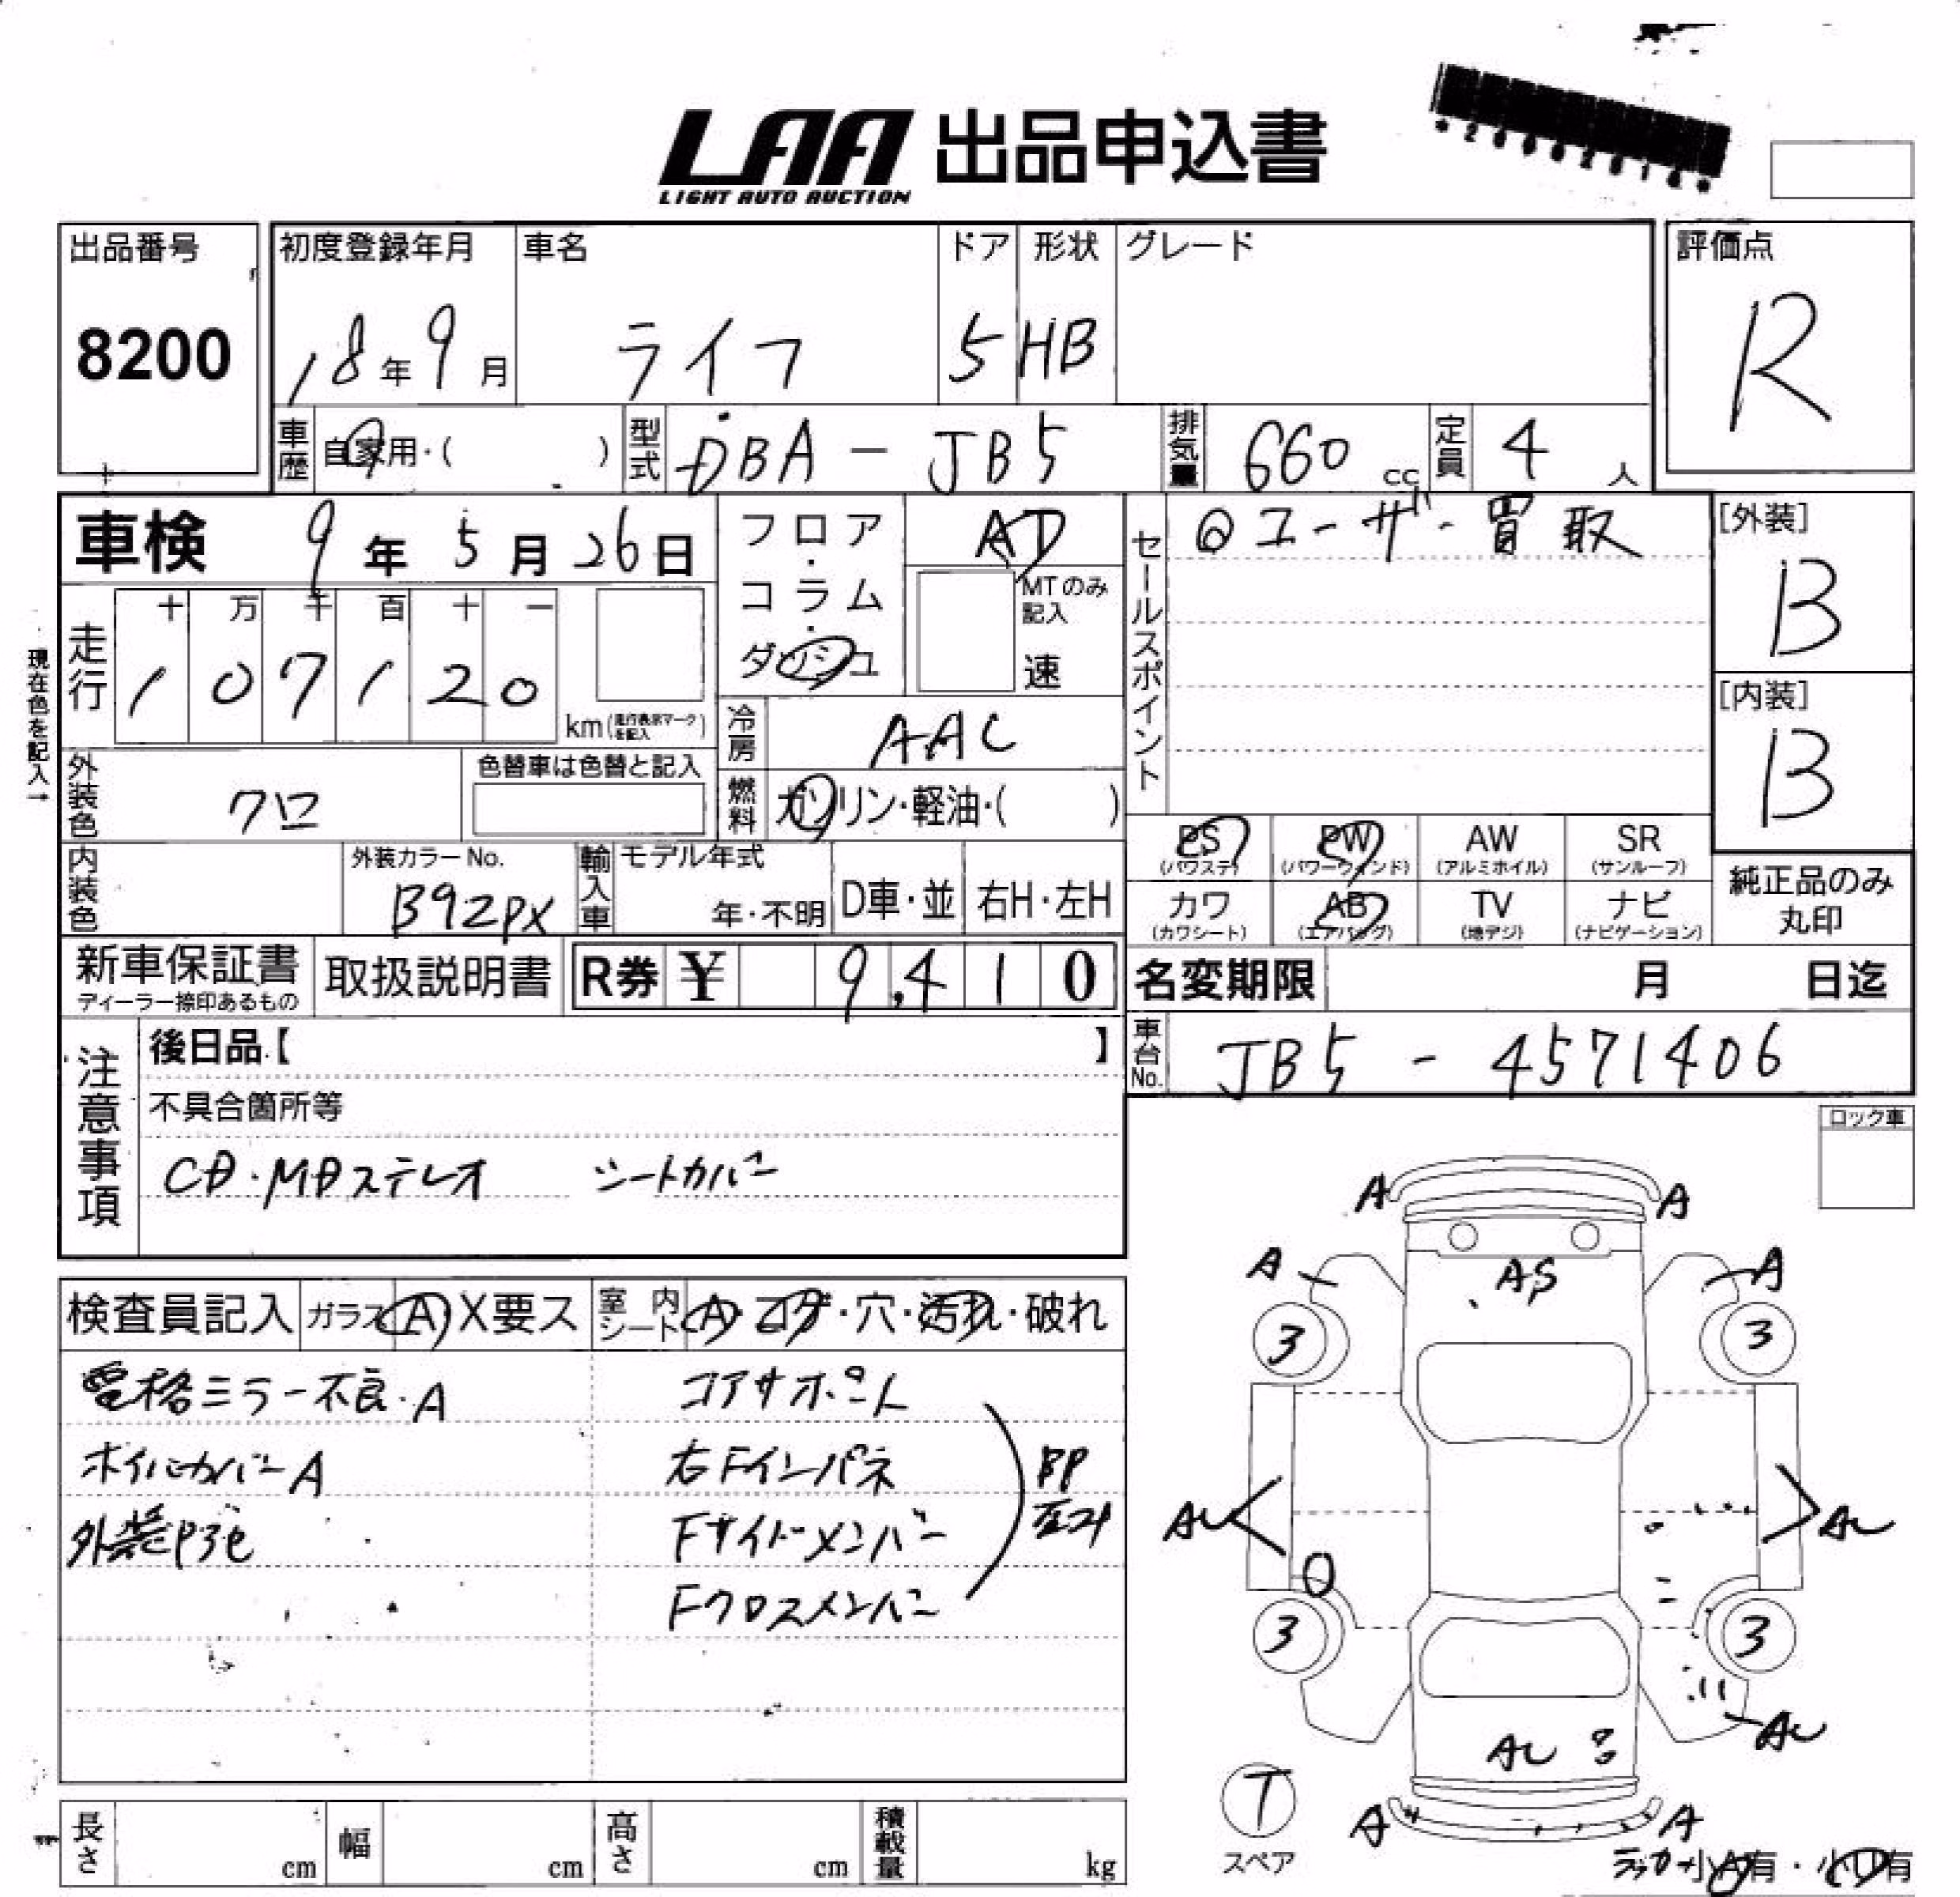 LAA 出品申込書
LIGHT AUTO AUCTION
出品番号
8200
初度登録年月
18年9月
車名
ライフ
ドア
5
形状
HB
グレード
評価点
R
車歴
自家用・( )
型式
DBA-JB5
排気量
660 cc
定員
4 人
車検
9年5月26日
フロア・コラム・ダッシュ
AT
MTのみ記入
速
セールスポイント
◎ユーザー買取
[外装]
B
[内装]
B
現在色を記入→
走行
十 万 千 百 十 一
1 0 7 1 2 0
km(走行表示マークを記入)
冷房
AAC
外装色
クロ
色替車は色替と記入
燃料
ガソリン・軽油・( )
内装色
外装カラーNo.
B92PX
輸入車
モデル年式
年・不明
D車・並
右H・左H
PS (パワステ)
PW (パワーウィンド)
AW (アルミホイル)
SR (サンルーフ)
カワ (カワシート)
AB (エアバッグ)
TV (地デジ)
ナビ (ナビゲーション)
純正品のみ丸印
新車保証書
ディーラー捺印あるもの
取扱説明書
R券 ¥ 9,410
名変期限 月 日迄
車台No.
JB5-4571406
注意事項
後日品【 】
不具合箇所等
CD・MDステレオ シートカバー
ロック車
検査員記入
ガラス A X要ス
室内シート A・コゲ・穴・汚れ・破れ
電格ミラー不良・A
ホイルカバーA
外装色
コアサポート
右Fインパネ
Fサイドメンバー
Fクロスメンバー
BP
A A
A A
AS
3 3
AU AU
3 3
AU
AU
A A
T
スペア
長さ cm
幅 cm
高さ cm
積載量 kg
小A有・小U有